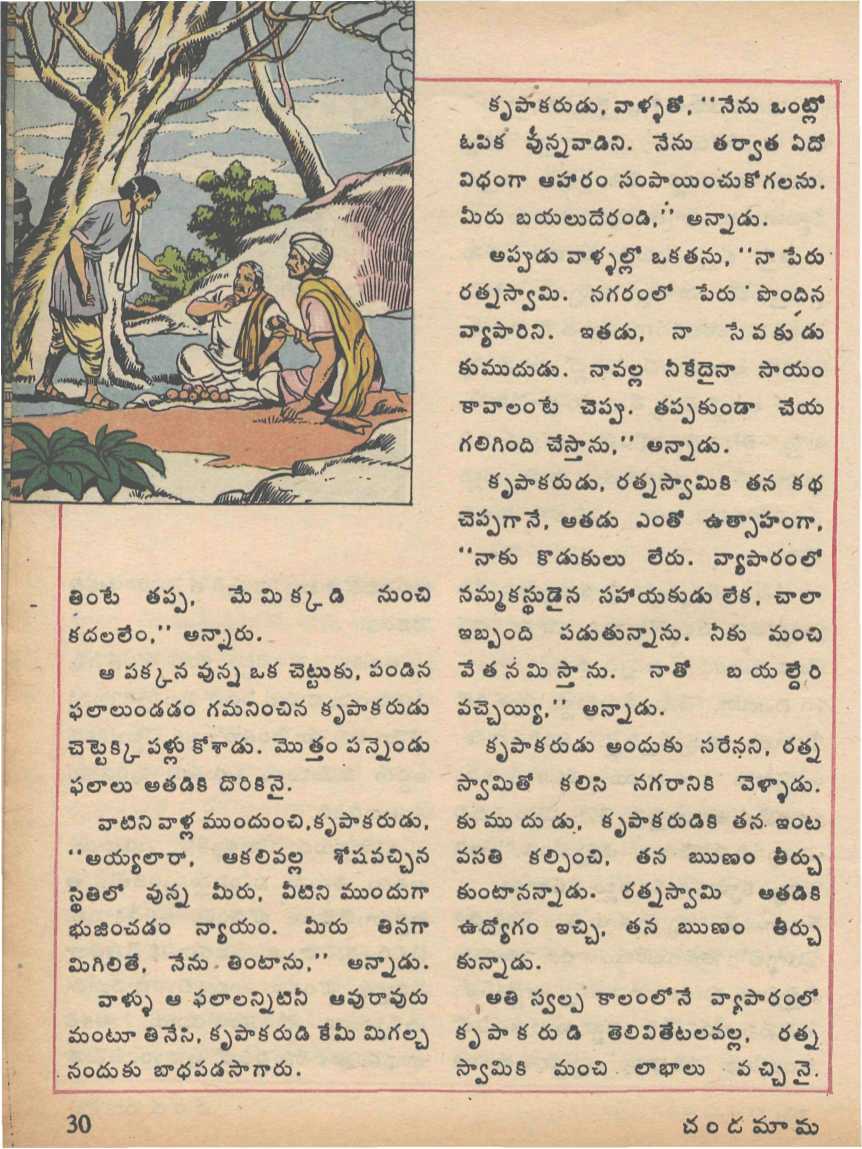 తింటే తప్ప, మేమిక్కడి నుంచి
కదలలేం,'' అన్నారు.
ఆ పక్కన వున్న ఒక చెట్టుకు, పండిన
ఫలాలుండడం గమనించిన కృపాకరుడు
చెట్టెక్కి పళ్లు కోశాడు. మొత్తం పన్నెండు
ఫలాలు అతడికి దొరికినై.
వాటిని వాళ్ల ముందుంచి,కృపాకరుడు,
''అయ్యలారా, ఆకలివల్ల శోషవచ్చిన
స్థితిలో వున్న మీరు, వీటిని ముందుగా
భుజించడం న్యాయం. మీరు తినగా
మిగిలితే, నేను తింటాను,'' అన్నాడు.
వాళ్ళు ఆ ఫలాలన్నిటినీ ఆవురావురు
మంటూ తినేసి, కృపాకరుడి కేమీ మిగల్చ
నందుకు బాధపడసాగారు.
కృపాకరుడు, వాళ్ళతో, ''నేను ఒంట్లో
ఓపిక వున్నవాడిని. నేను తర్వాత ఏదో
విధంగా ఆహారం సంపాయించుకోగలను.
మీరు బయలుదేరండి,'' అన్నాడు.
అప్పుడు వాళ్ళల్లో ఒకతను, ''నా పేరు
రత్నస్వామి. నగరంలో పేరు పొందిన
వ్యాపారిని. ఇతడు, నా సేవకుడు
కుముదుడు. నావల్ల నీకేదైనా సాయం
కావాలంటే చెప్పు. తప్పకుండా చేయ
గలిగింది చేస్తాను,'' అన్నాడు.
కృపాకరుడు, రత్నస్వామికి తన కథ
చెప్పగానే, అతడు ఎంతో ఉత్సాహంగా,
''నాకు కొడుకులు లేరు. వ్యాపారంలో
నమ్మకస్థుడైన సహాయకుడు లేక, చాలా
ఇబ్బంది పడుతున్నాను. నీకు మంచి
వేతనమిస్తాను. నాతో బయల్దేరి
వచ్చెయ్యి,'' అన్నాడు.
కృపాకరుడు అందుకు సరేనని, రత్న
స్వామితో కలిసి నగరానికి వెళ్ళాడు.
కుముదుడు, కృపాకరుడికి తన ఇంట
వసతి కల్పించి, తన ఋణం తీర్చు
కుంటానన్నాడు. రత్నస్వామి అతడికి
ఉద్యోగం ఇచ్చి, తన ఋణం తీర్చు
కున్నాడు.
అతి స్వల్ప కాలంలోనే వ్యాపారంలో
కృపాకరుడి తెలివితేటలవల్ల, రత్న
స్వామికి మంచి లాభాలు వచ్చినై.
30
చందమామ